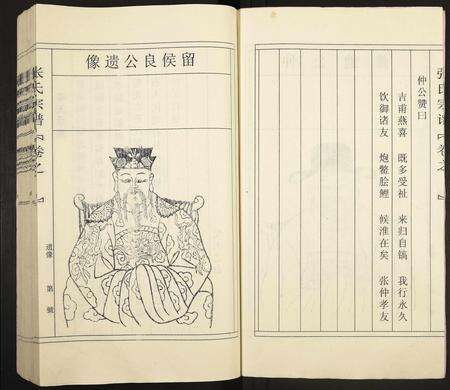 张氏宗谱【卷之
仲公赞曰
吉甫燕喜 既多受祉 来归自镐 我行永久
饮御诸友 炮鳖脍鲤 候淮在矣 张仲孝友
留侯良公遗像
张氏宗谱【卷之一
遗像 第 號